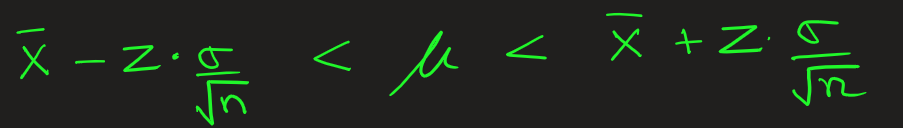 x̄ − z · σ/√n < μ < x̄ + z · σ/√n